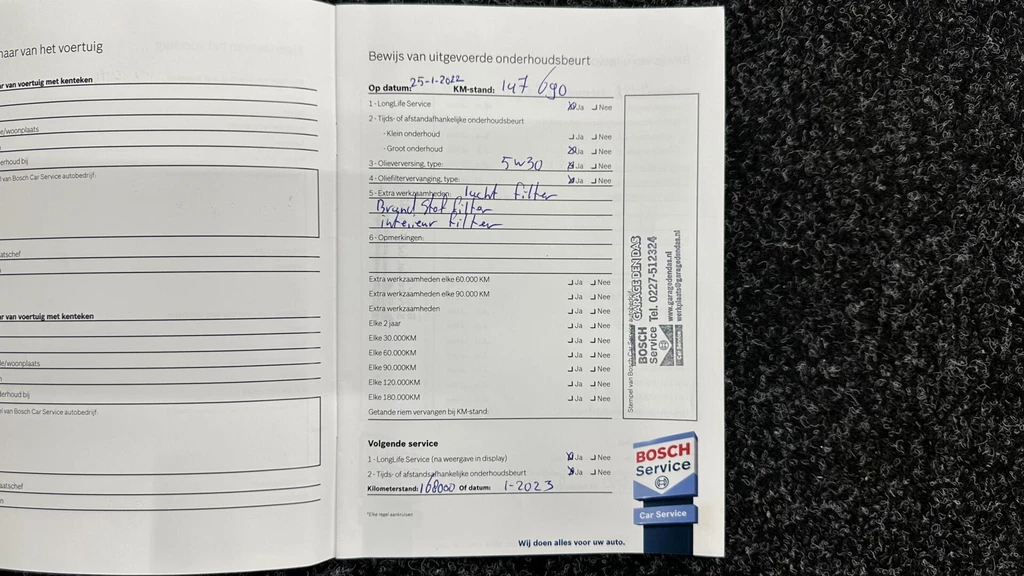 naar van het voertuig
ar van voertuig met kenteken
e/woonplaats
erhoud bij
van Bosch Car Service autobedrijf:
atschef
ar van voertuig met kenteken
e/woonplaats
derhoud bij
el van Bosch Car Service autobedrijf:
aatschef
Bewijs van uitgevoerde onderhoudsbeurt
Op datum: 25-1-2022 KM-stand: 147 690
1 - LongLife Service Ja Nee
2 - Tijds- of afstandafhankelijke onderhoudsbeurt
- Klein onderhoud Ja Nee
- Groot onderhoud Ja Nee
3 - Olieverversing, type: 5W30 Ja Nee
4 - Oliefiltervervanging, type: Ja Nee
5 - Extra werkzaamheden: lucht filter
Brand Stof filter
interieur filter
6 - Opmerkingen:
Extra werkzaamheden elke 60.000 KM Ja Nee
Extra werkzaamheden elke 90.000 KM Ja Nee
Extra werkzaamheden Ja Nee
Elke 2 jaar Ja Nee
Elke 30.000KM Ja Nee
Elke 60.000KM Ja Nee
Elke 90.000KM Ja Nee
Elke 120.000KM Ja Nee
Elke 180.000KM Ja Nee
Getande riem vervangen bij KM-stand:
Volgende service
1 - LongLife Service (na weergave in display) Ja Nee
2 - Tijds- of afstandsafhankelijke onderhoudsbeurt Ja Nee
Kilometerstand: 168000 Of datum: 1-2023
*Elke regel aankruisen
Stempel van Bosch Car Service autobedrijf:
BOSCH GARAGE DEN DAS
Service Tel. 0227-512324
www.garagedendas.nl
Car Service werkplaats@garagedendas.nl
BOSCH
Service
Car Service
Wij doen alles voor uw auto.